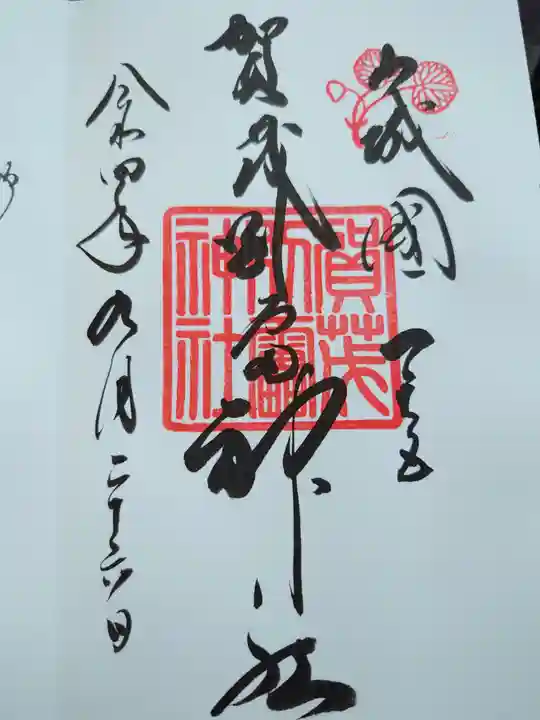 山城國 一之宮
賀茂別雷神社
賀茂別雷神社
令和四年九月二十六日